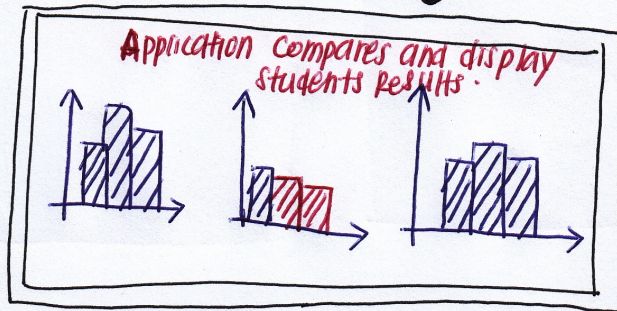 Application compares and display
students Results.